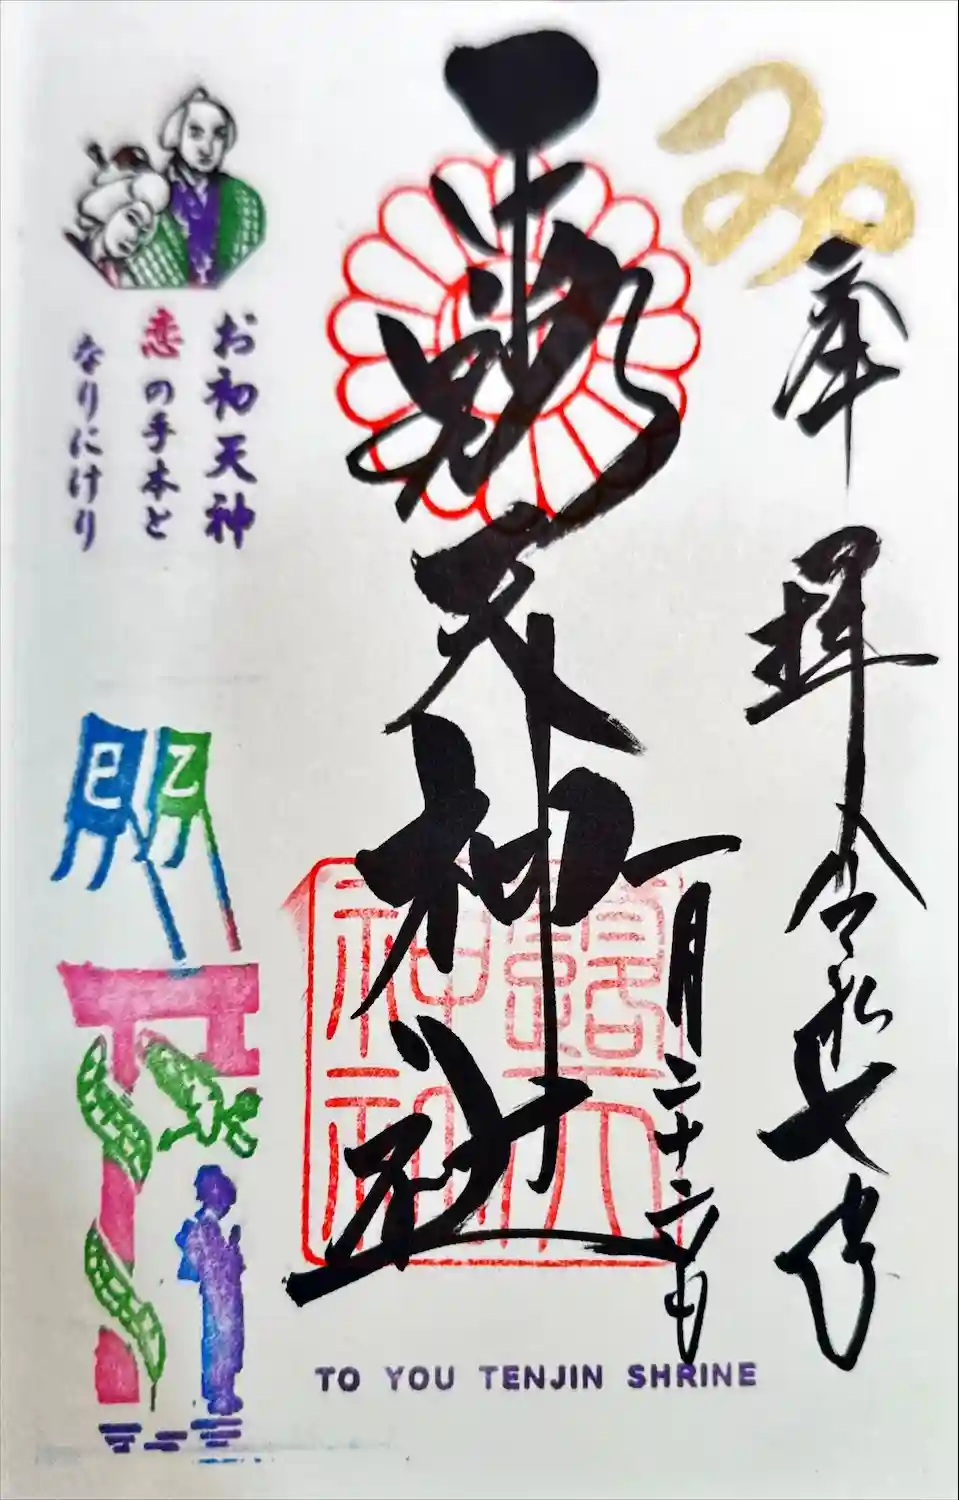 巳
奉拝 令和七年
一月二十六日
露天神社
露天
神社
お初天神
恋の手本と
なりにけり
乙
巳
TO YOU TENJIN SHRINE